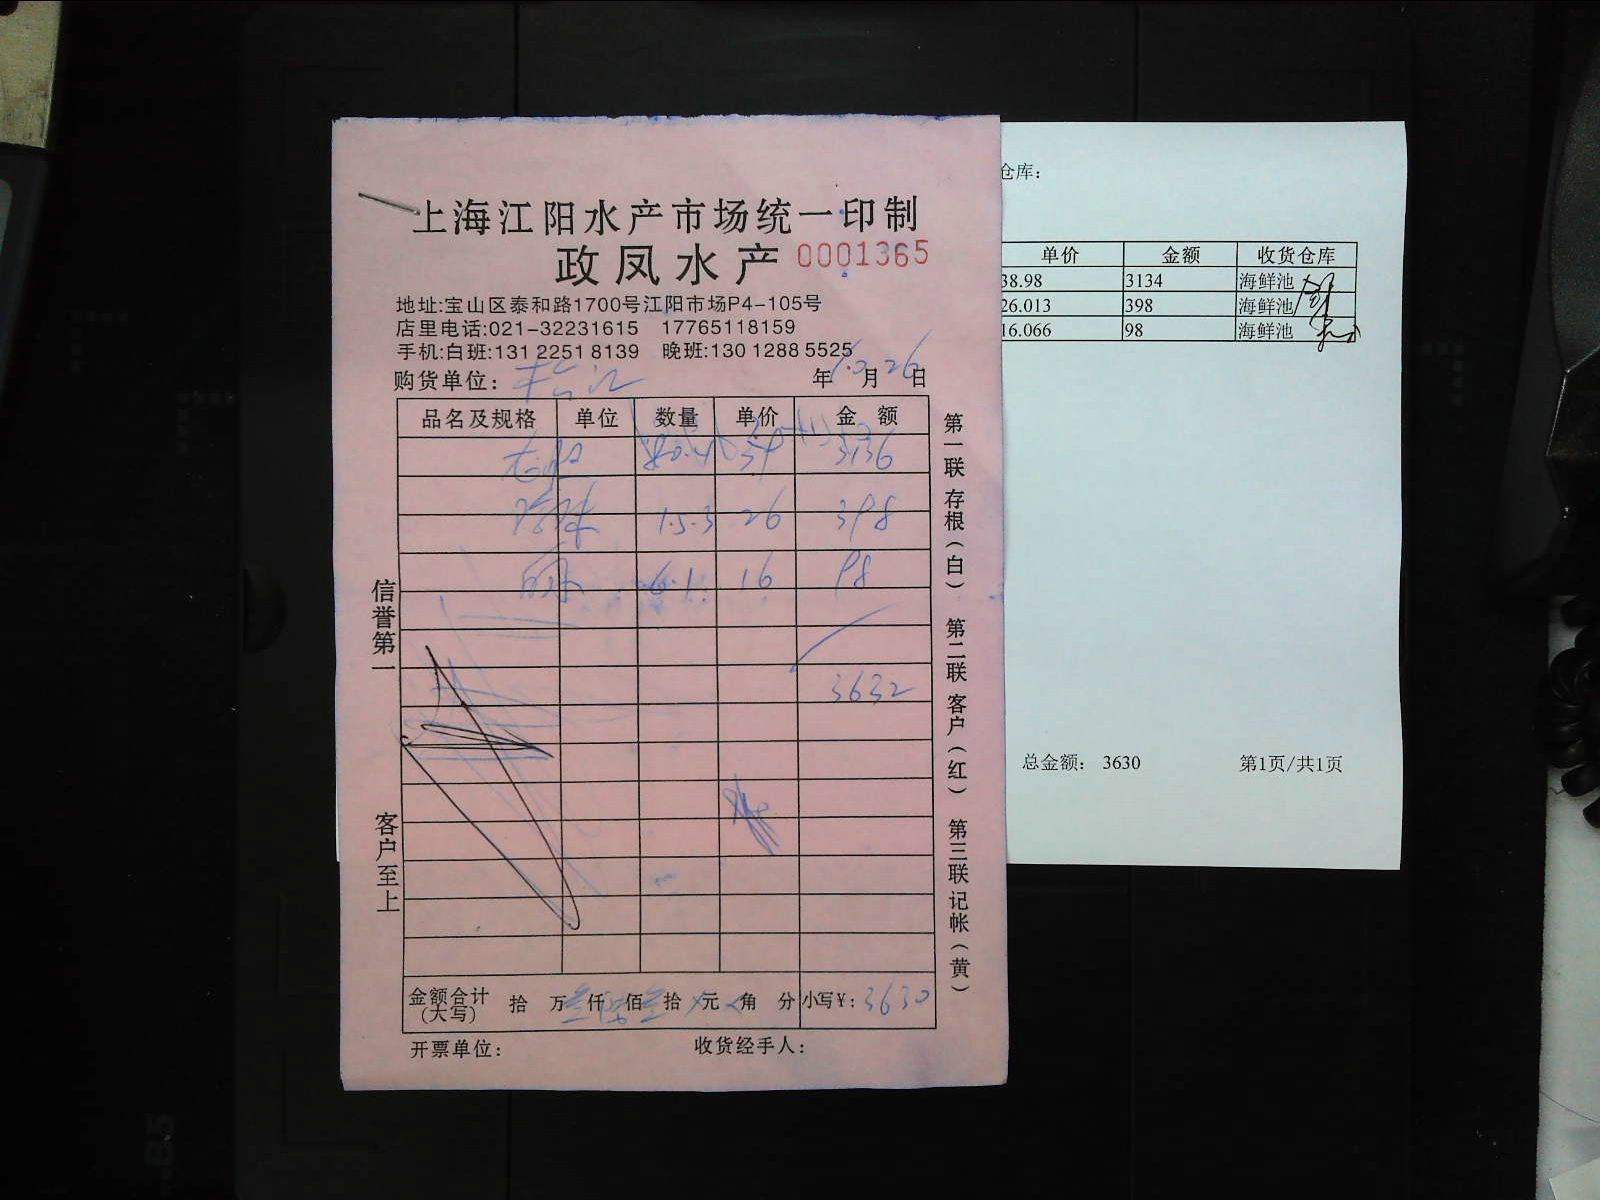 上海江阳水产市场统一印制
政凤水产 0001365
地址:宝山区泰和路1700号江阳市场P4-105号
店里电话:021-32231615 17765118159
手机:白班:131 2251 8139 晚班:130 1288 5525
购货单位: 年 月 26 日
品名及规格 单位 数量 单价 金额
3136
15.3 26 398
6.1 16 98
3632
金额合计(大写) 拾 万 仟 佰 拾 元 角 分 小写¥: 3630
开票单位: 收货经手人:
信誉第一
客户至上
第一联存根(白) 第二联客户(红) 第三联记帐(黄)
仓库:
单价 金额 收货仓库
38.98 3134 海鲜池
26.013 398 海鲜池
16.066 98 海鲜池
总金额: 3630 第1页/共1页